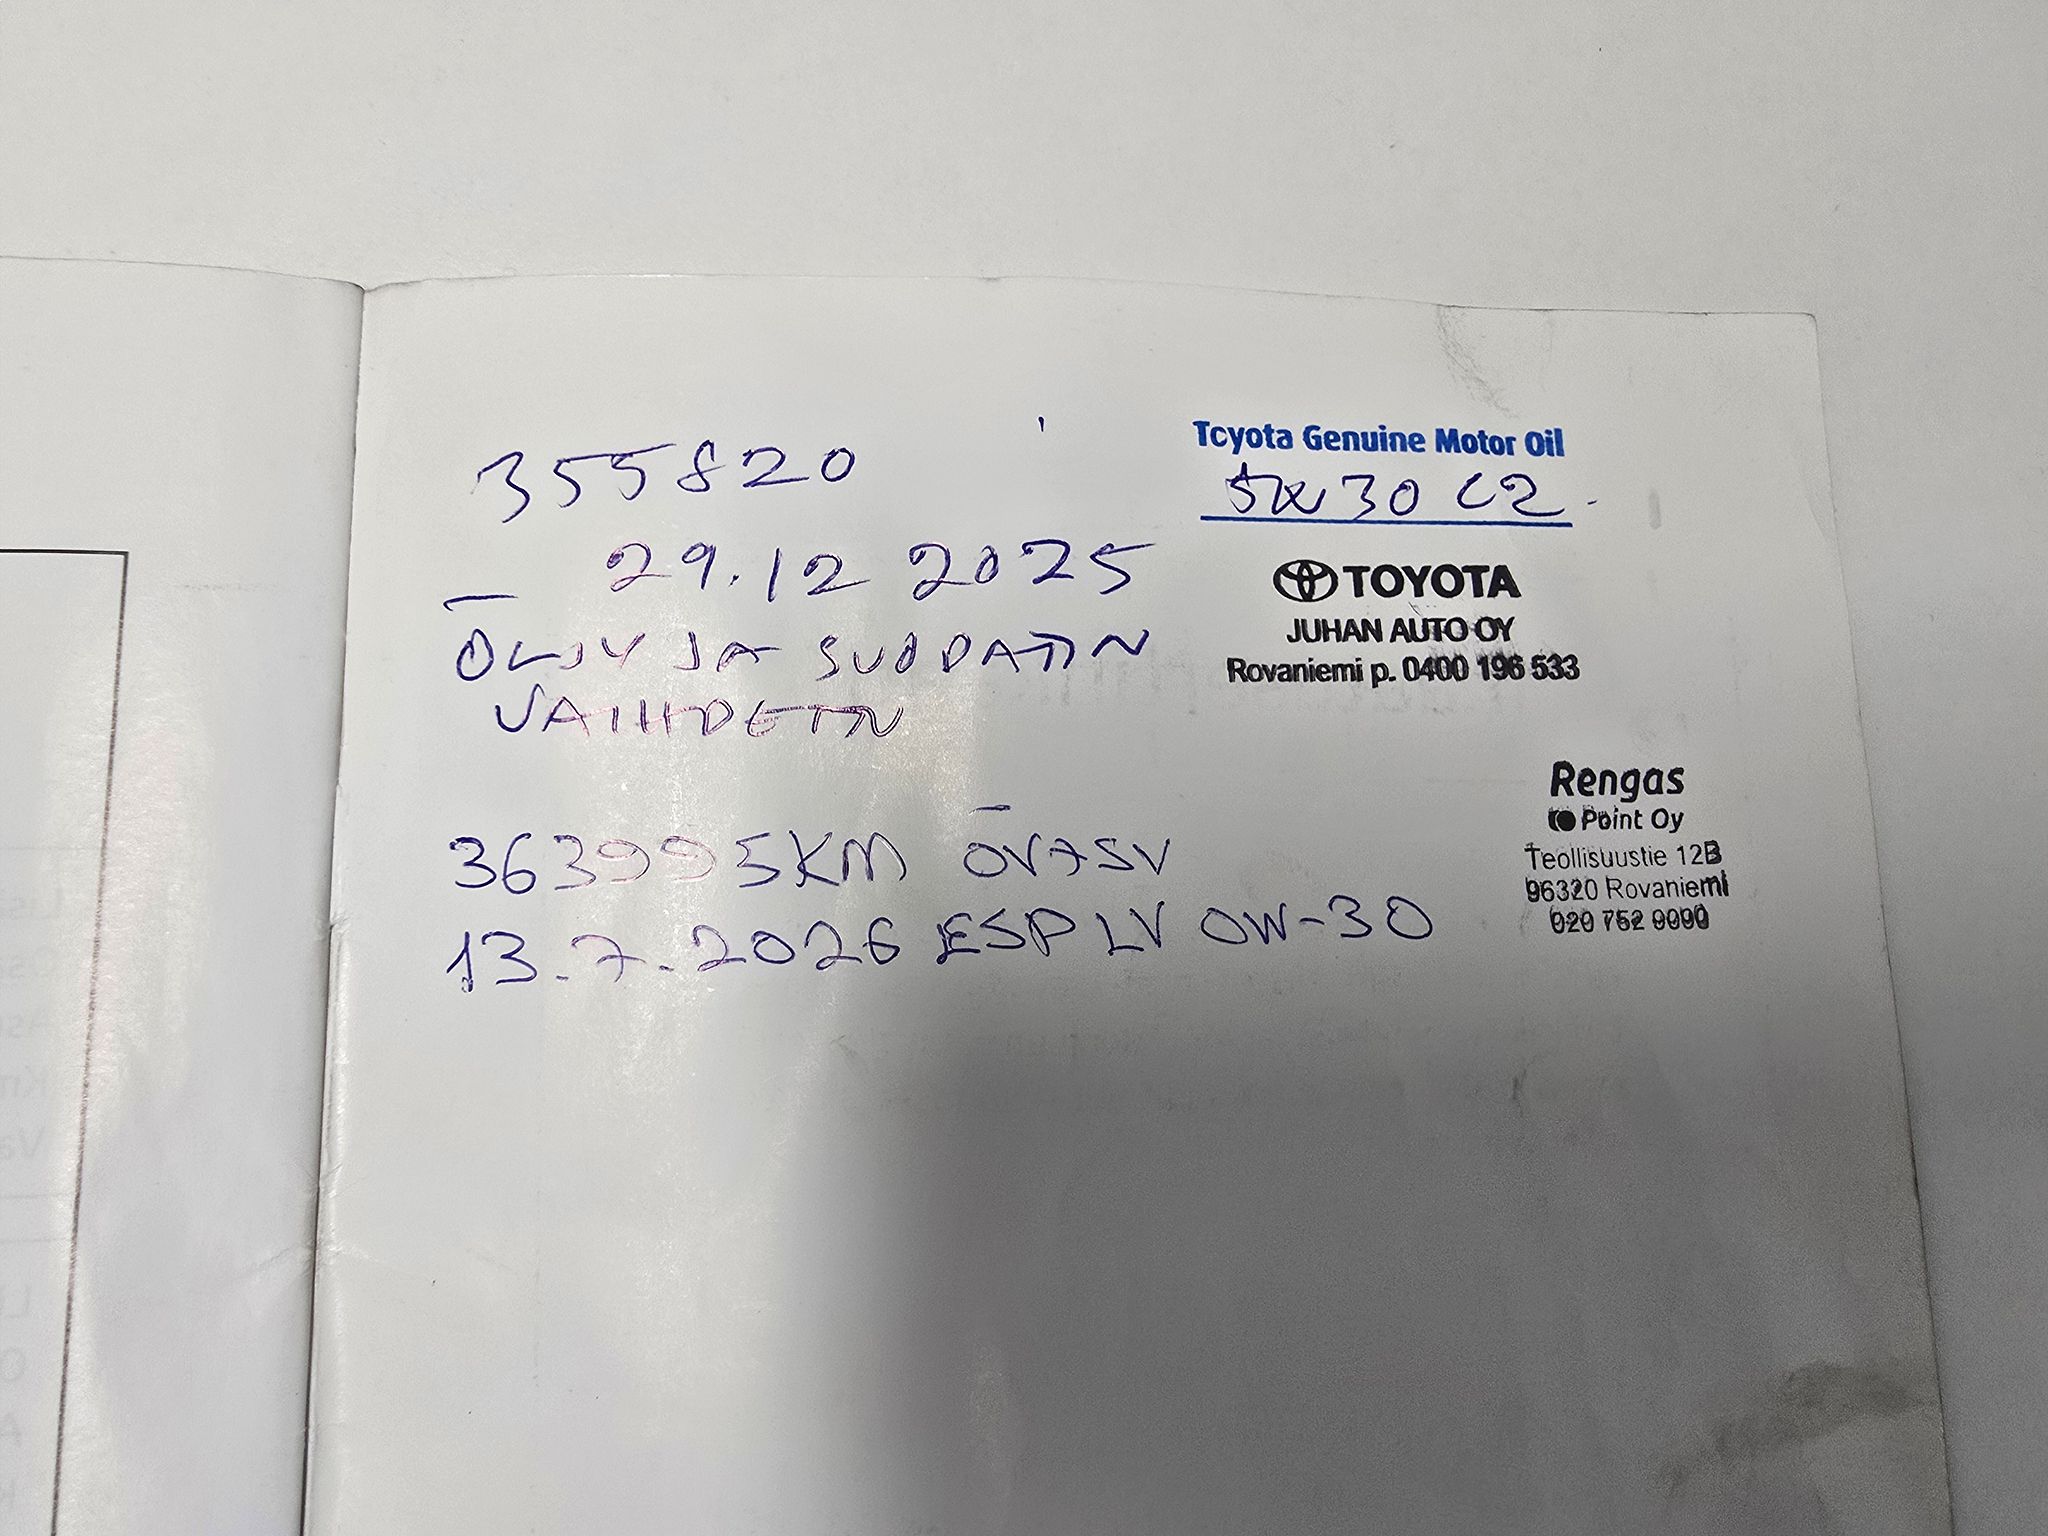 355820
29.12 2025
ÖLJY JA SUODATIN
VAIHDETTN
Toyota Genuine Motor Oil
5W30 C2
TOYOTA
JUHAN AUTO OY
Rovaniemi p. 0400 196 533
363995KM ÖV+SV
13.7.2026 ESP LV 0W-30
Rengas
Point Oy
Teollisuustie 12B
96320 Rovaniemi
020 752 9090